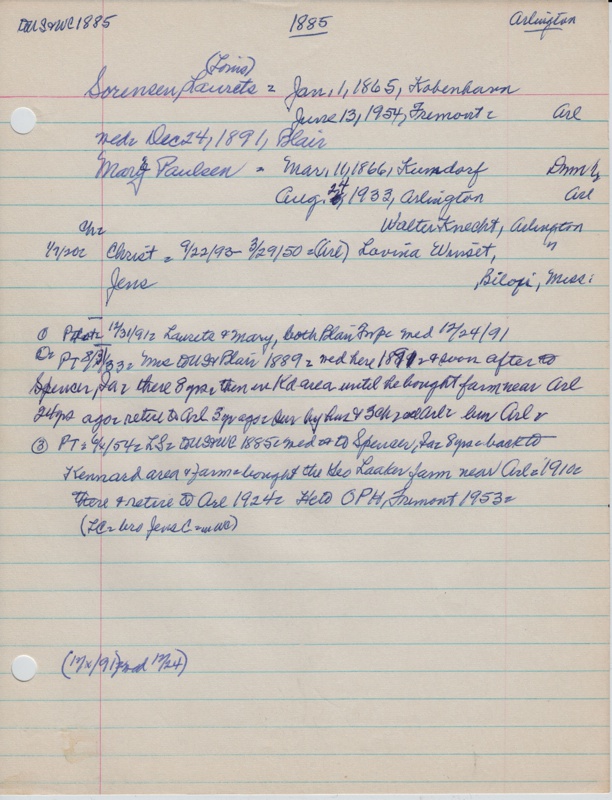 DUS&WC 1885 1885 Arlington
(Louis)
Sorensen, Laurets = Jan, 1, 1865, Kobenhavn
June 13, 1954, Fremont = Arl
med = Dec 24, 1891, Blair
Mary Paulsen = Mar, 11, 1866, Kumdorf Dnmk
Aug. 24, 1933, Arlington Arl
Ch = Walter Knecht, Arlington
1/7/20 = Christ = 9/22/93 - 3/29/50 = (Arl) Lavina Winset, "
Jens , Biloxi, Miss:
① P 12/31/91 = Laurets & Mary, both Blair Twp = med 12/24/91
② PT 8/31/33 = Mrs toUS&Blair 1889 = med here 1891 = & soon after to
Spencer, Ia = there 8 yrs = then in Kd area until he bought farm near Arl
24 yrs ago = retire to Arl 3 yr ago = sur by hus & 3 ch = Arl = bur Arl =
③ PT = /54 = LS = toUS&WC 1885 = med = to Spencer, Ia = 8 yrs = back to
Kennard area & farm = bought the Geo Laaker farm near Arl = 1910 =
there & retire to Arl 1924 = He to OPH, Fremont 1953 =
(LC = bro Jens C = WC)
(12/x/91) = med 12/24)